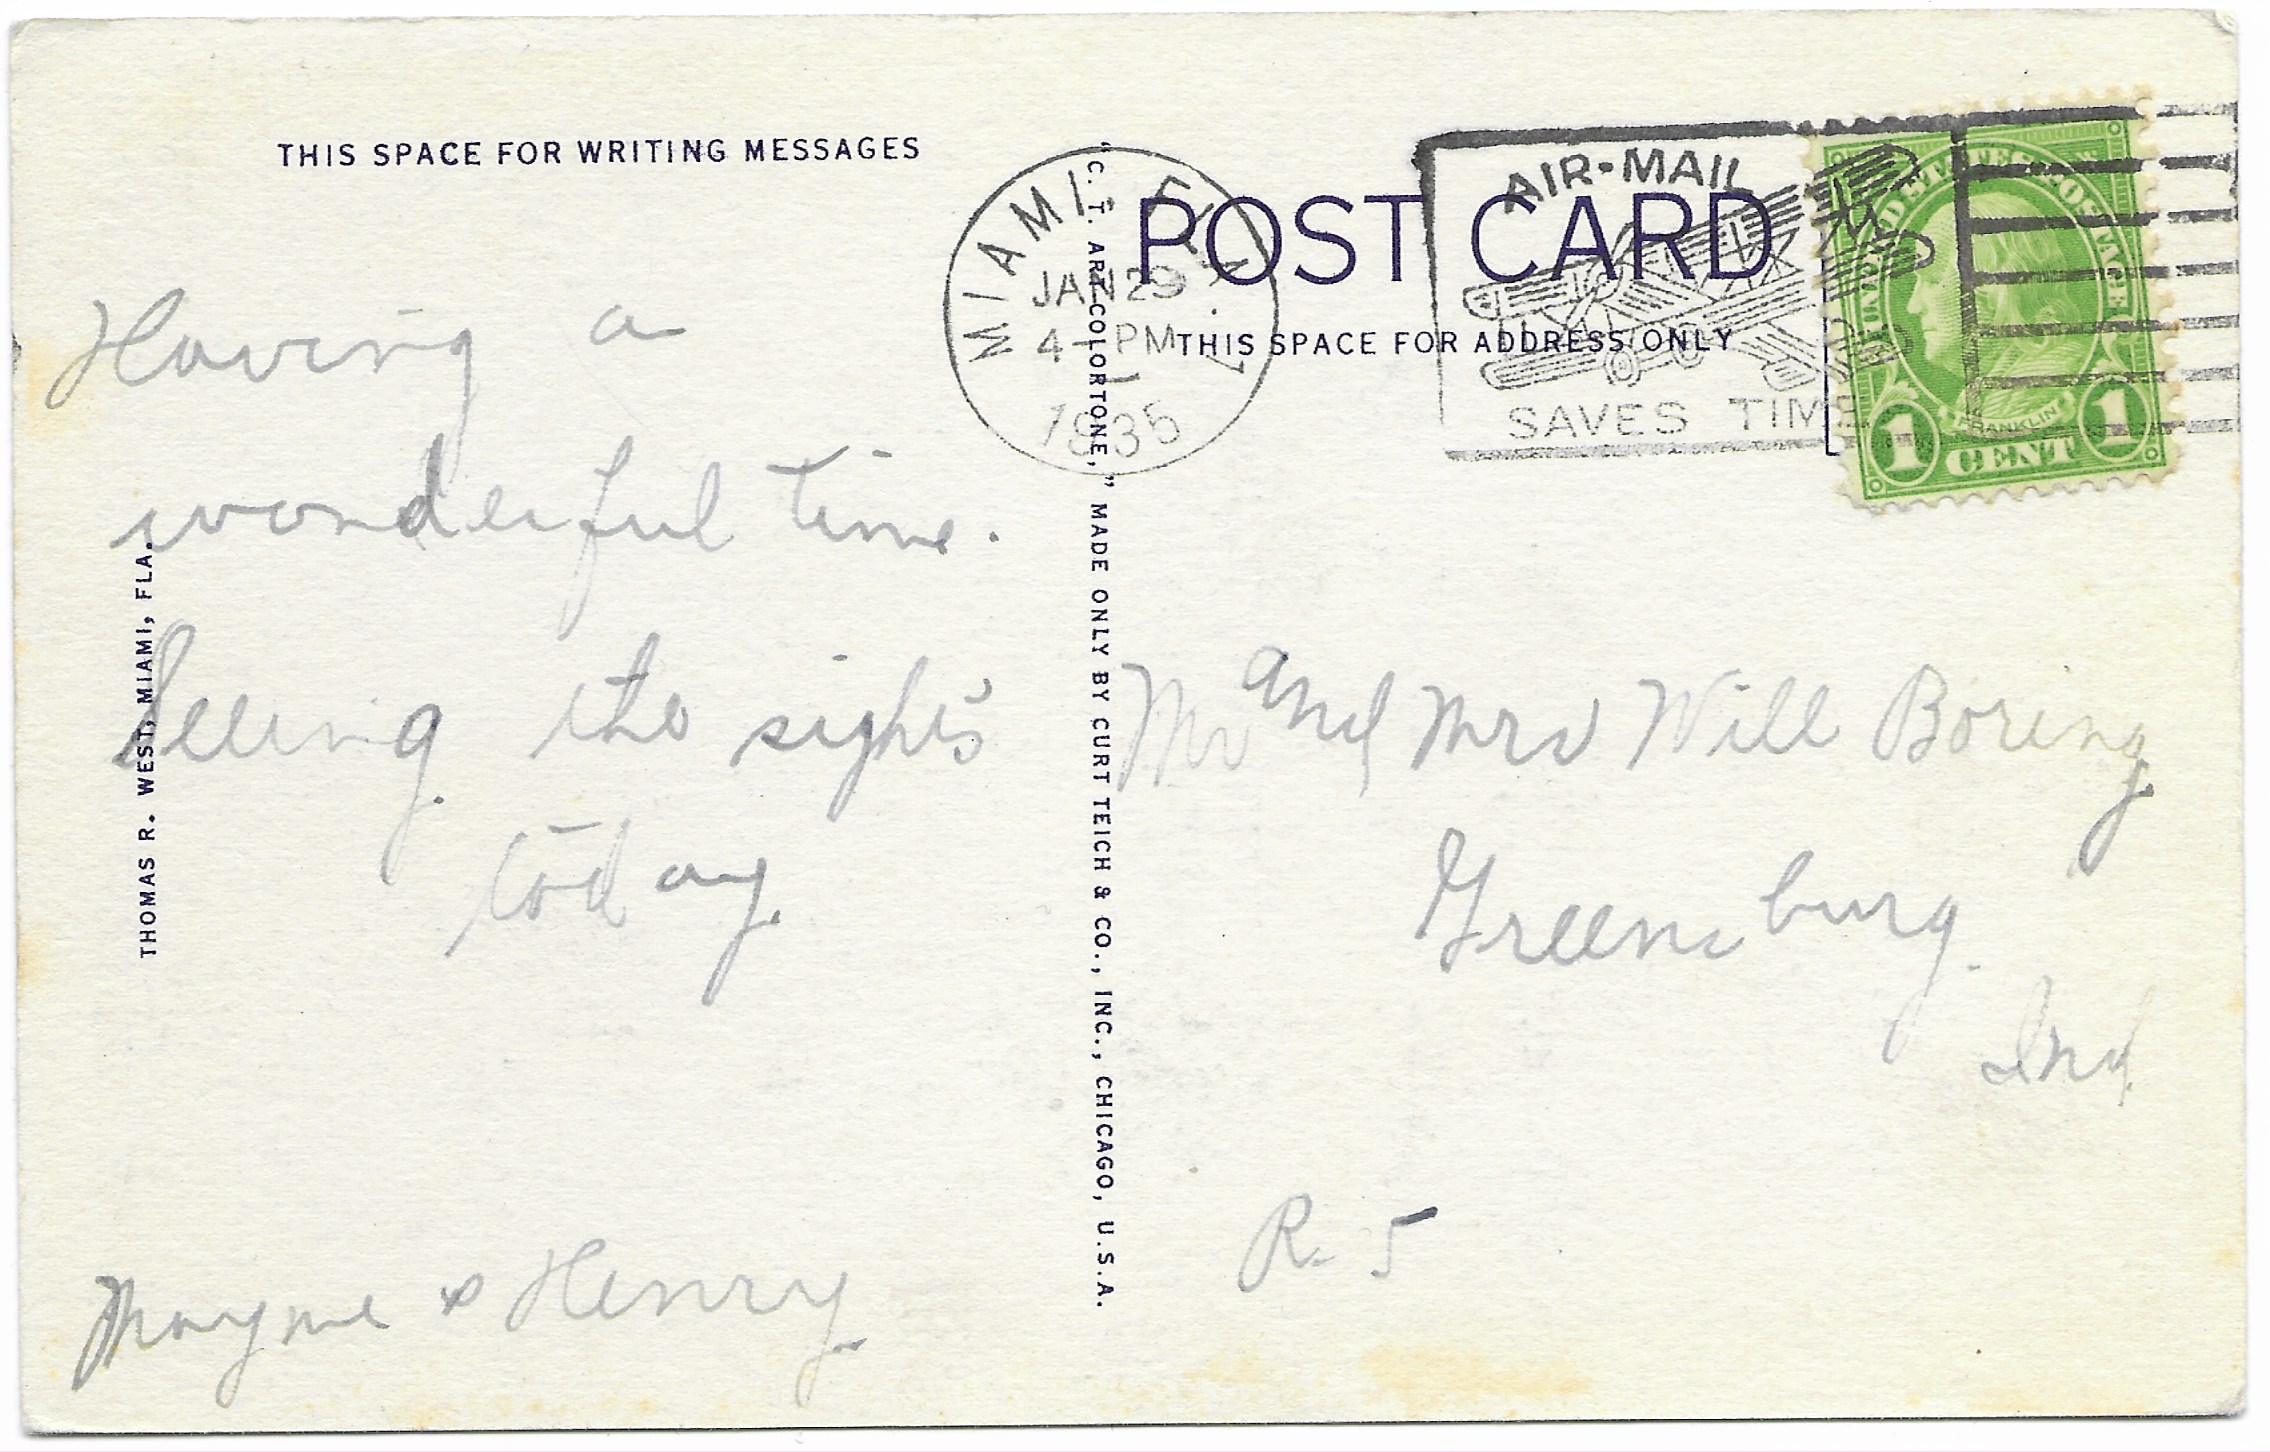 THIS SPACE FOR WRITING MESSAGES
Having a
wonderful time.
Seeing the sights
today.
Mayme & Henry
THOMAS R. WEST, MIAMI, FLA.
"C. T. ART-COLORTONE," MADE ONLY BY CURT TEICH & CO., INC., CHICAGO, U.S.A.
POST CARD
THIS SPACE FOR ADDRESS ONLY
MIAMI, FLA.
JAN 29
4 - PM
1935
AIR-MAIL
SAVES TIME
UNITED STATES POSTAGE
FRANKLIN
1 CENT 1
Mr and Mrs Will Boring
Greensburg.
Ind
R. 5